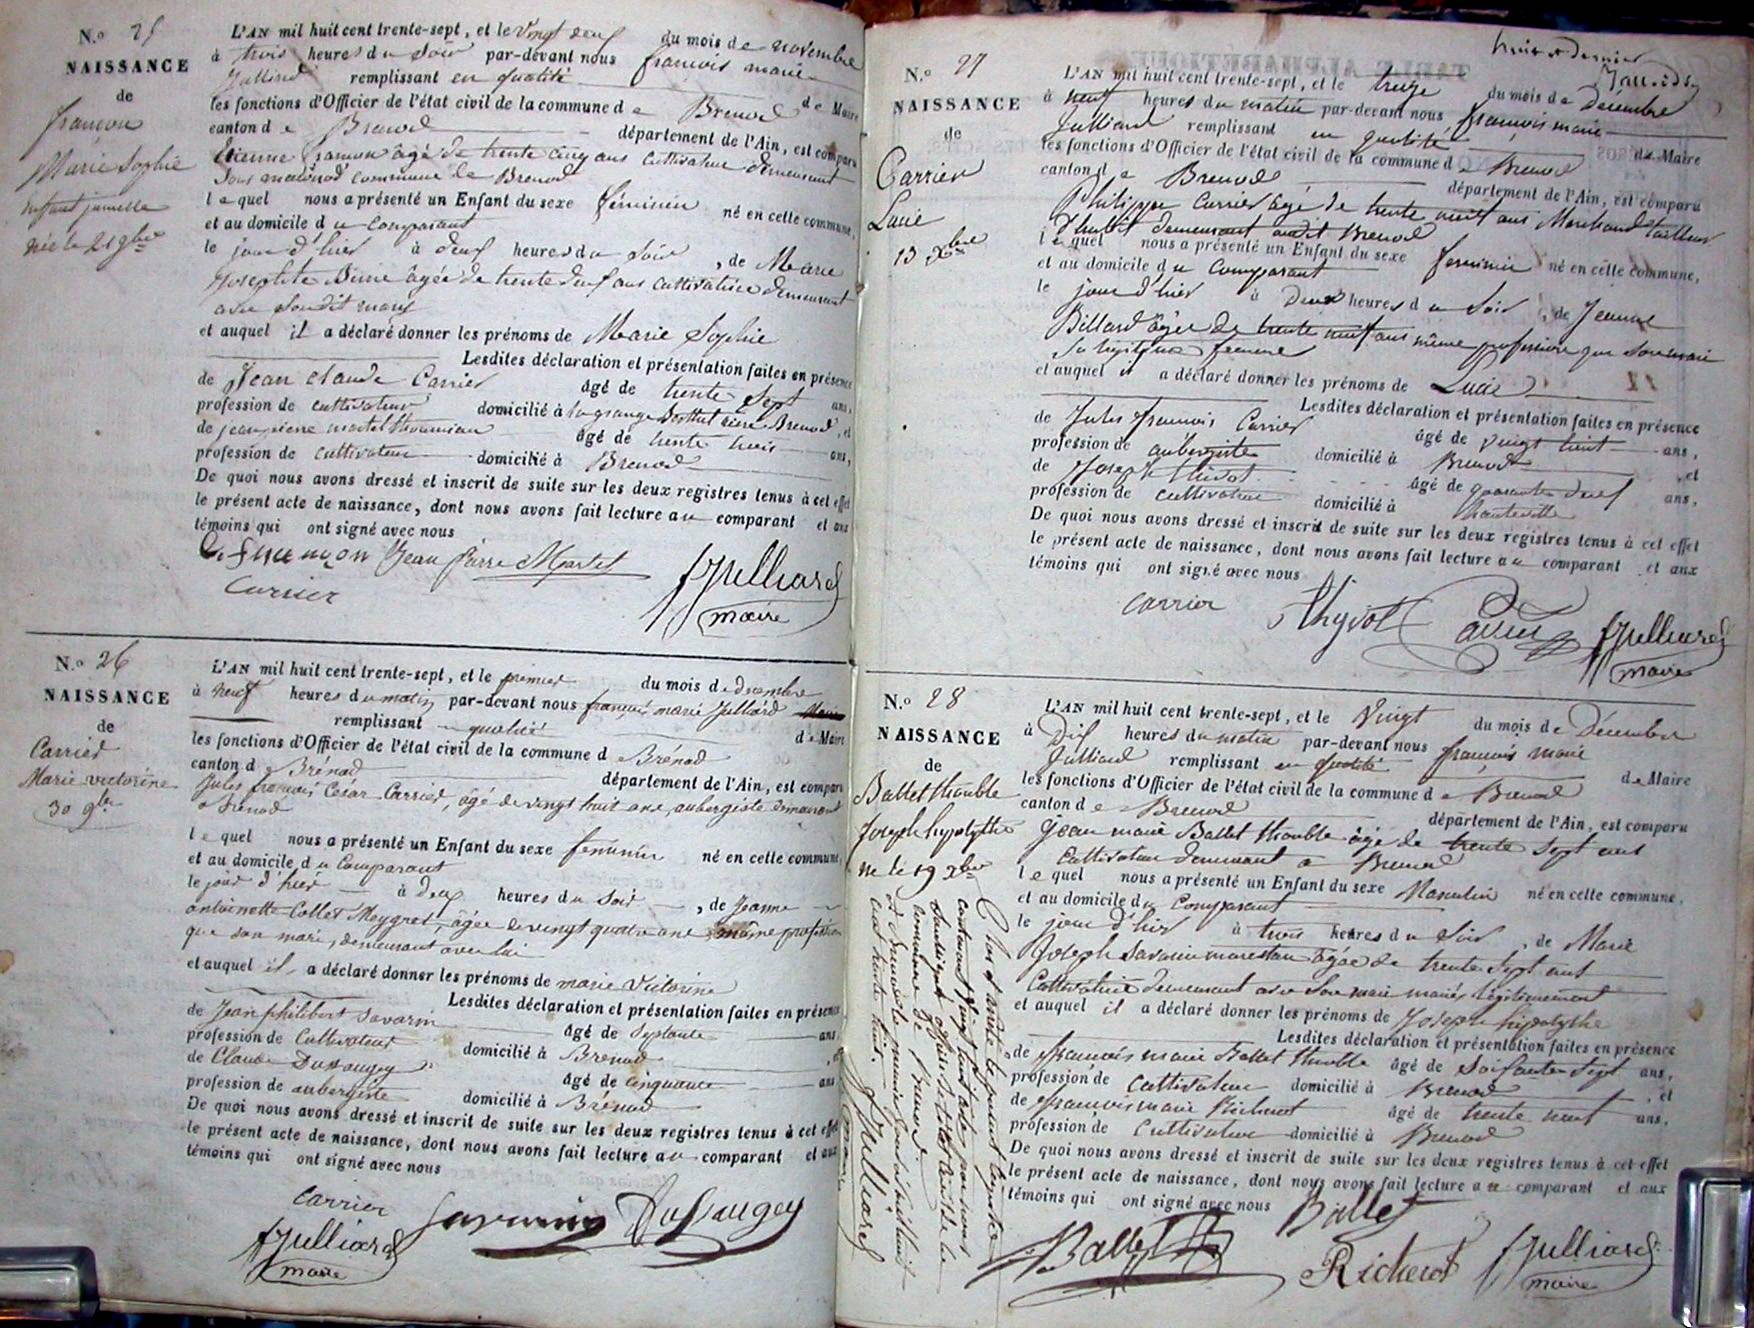 N.o 25
NAISSANCE
de
françon
Marie Sophie
enfant jumelle
née le 21 9bre
L'AN mil huit cent trente-sept, et le vingt deux du mois de novembre
à trois heures du soir par-devant nous françois marie
Julliard remplissant en qualité de Maire
les fonctions d'Officier de l'état civil de la commune de Brenod
canton de Brenod département de l'Ain, est comparu
Etienne françon âgé de trente cinq ans cultivateur demeurant
commune de Brenod
lequel nous a présenté un Enfant du sexe féminin né en cette commune,
et au domicile du comparant
le jour d'hier à deux heures du soir, de Marie
Josephte âgée de trente deux ans cultivatrice demeurant
avec son dit mary
et auquel il a déclaré donner les prénoms de Marie Sophie
Lesdites déclaration et présentation faites en présence
de Jean claude Carrier âgé de trente sept ans,
profession de cultivateur domicilié à la grange Brenod, et
de jean pierre martel thoumian âgé de trente trois ans,
profession de cultivateur domicilié à Brenod
De quoi nous avons dressé et inscrit de suite sur les deux registres tenus à cet effet
le présent acte de naissance, dont nous avons fait lecture au comparant et aux
témoins qui ont signé avec nous
Jean Pierre Martel
Carrier
fJulliard
maire
N.o 26
NAISSANCE
de
Carrier
Marie victorine
30 9bre
L'AN mil huit cent trente-sept, et le premier du mois de decembre
à neuf heures du matin par-devant nous françois marie Julliard
remplissant qualité de Maire
les fonctions d'Officier de l'état civil de la commune d Brénod
canton d Brénod département de l'Ain, est comparu
Jules françois Cesar Carrier, âgé de vingt huit ans, aubergiste demeurant
a Brenod
lequel nous a présenté un Enfant du sexe feminin né en cette commune,
et au domicile du Comparant
le jour d'hier à deux heures du soir, de Jeanne
antoinette Collet Meygret, âgée de vingt quatre ans même profession
que son mari, demeurant avec lui
et auquel il a déclaré donner les prénoms de marie victorine
Lesdites déclaration et présentation faites en présence
de Jean philibert Savarin âgé de septante ans,
profession de Cultivateur domicilié à Brenod, et
de Claude Dussaugey âgé de cinquante ans,
profession de aubergiste domicilié à Brénod
De quoi nous avons dressé et inscrit de suite sur les deux registres tenus à cet effet
le présent acte de naissance, dont nous avons fait lecture au comparant et aux
témoins qui ont signé avec nous
Carrier Savarin Dussaugey
fJulliard
maire
huit et dernier
N.o 27
NAISSANCE
de
Carrier
Lucie
13 Xbre
L'AN mil huit cent trente-sept, et le treize du mois de Décembre
à neuf heures du matin par-devant nous françois marie
Julliard remplissant en qualité de Maire
les fonctions d'Officier de l'état civil de la commune de Brenod
canton de Brenod département de l'Ain, est comparu
Philippe Carrier âgé de trente neuf ans Marchand tailleur
d'habit demeurant audit Brenod
lequel nous a présenté un Enfant du sexe feminin né en cette commune,
et au domicile du comparant
le jour d'hier à deux heures du soir, de Jeanne
Billard âgée de trente neuf ans même profession que son mari
sa légitime femme
et auquel il a déclaré donner les prénoms de Lucie
Lesdites déclaration et présentation faites en présence
de Jules françois Carrier âgé de vingt huit ans,
profession de aubergiste domicilié à Brenod, et
de Joseph âgé de quarante deux ans,
profession de cultivateur domicilié à hauteville
De quoi nous avons dressé et inscrit de suite sur les deux registres tenus à cet effet
le présent acte de naissance, dont nous avons fait lecture au comparant et aux
témoins qui ont signé avec nous
Carrier Thyvot Carrier fJulliard
maire
N.o 28
NAISSANCE
de
Ballet thouble
Joseph hypolythe
né le 19 Xbre
L'AN mil huit cent trente-sept, et le Vingt du mois de Décembre
à Dix heures du matin par-devant nous françois marie
Julliard remplissant en qualité de Maire
les fonctions d'Officier de l'état civil de la commune de Brenod
canton de Brenod département de l'Ain, est comparu
Jean marie Ballet thouble âgé de trente sept ans
Cultivateur demeurant a Brenod
lequel nous a présenté un Enfant du sexe Masculin né en cette commune,
et au domicile du comparant
le jour d'hier à trois heures du soir, de Marie
Joseph Savarin marestan âgée de trente sept ans
Cultivatrice demeurant avec son mari mariés légitimement
et auquel il a déclaré donner les prénoms de Joseph hypolythe
Lesdites déclaration et présentation faites en présence
de françois marie Ballet thouble âgé de soixante sept ans,
profession de cultivateur domicilié à Brenod, et
de françois marie Richerot âgé de trente neuf ans,
profession de Cultivateur domicilié à Brenod
De quoi nous avons dressé et inscrit de suite sur les deux registres tenus à cet effet
le présent acte de naissance, dont nous avons fait lecture au comparant et aux
témoins qui ont signé avec nous
Ballet
Ballet Richerot fJulliard
maire
Clos et arrêté le présent registre
contenant vingt huit actes par nous
soussigné officier de l'état civil de la
commune de Brenod.
a Brenod le premier Janvier mil huit
cent trente huit. fJulliard
maire